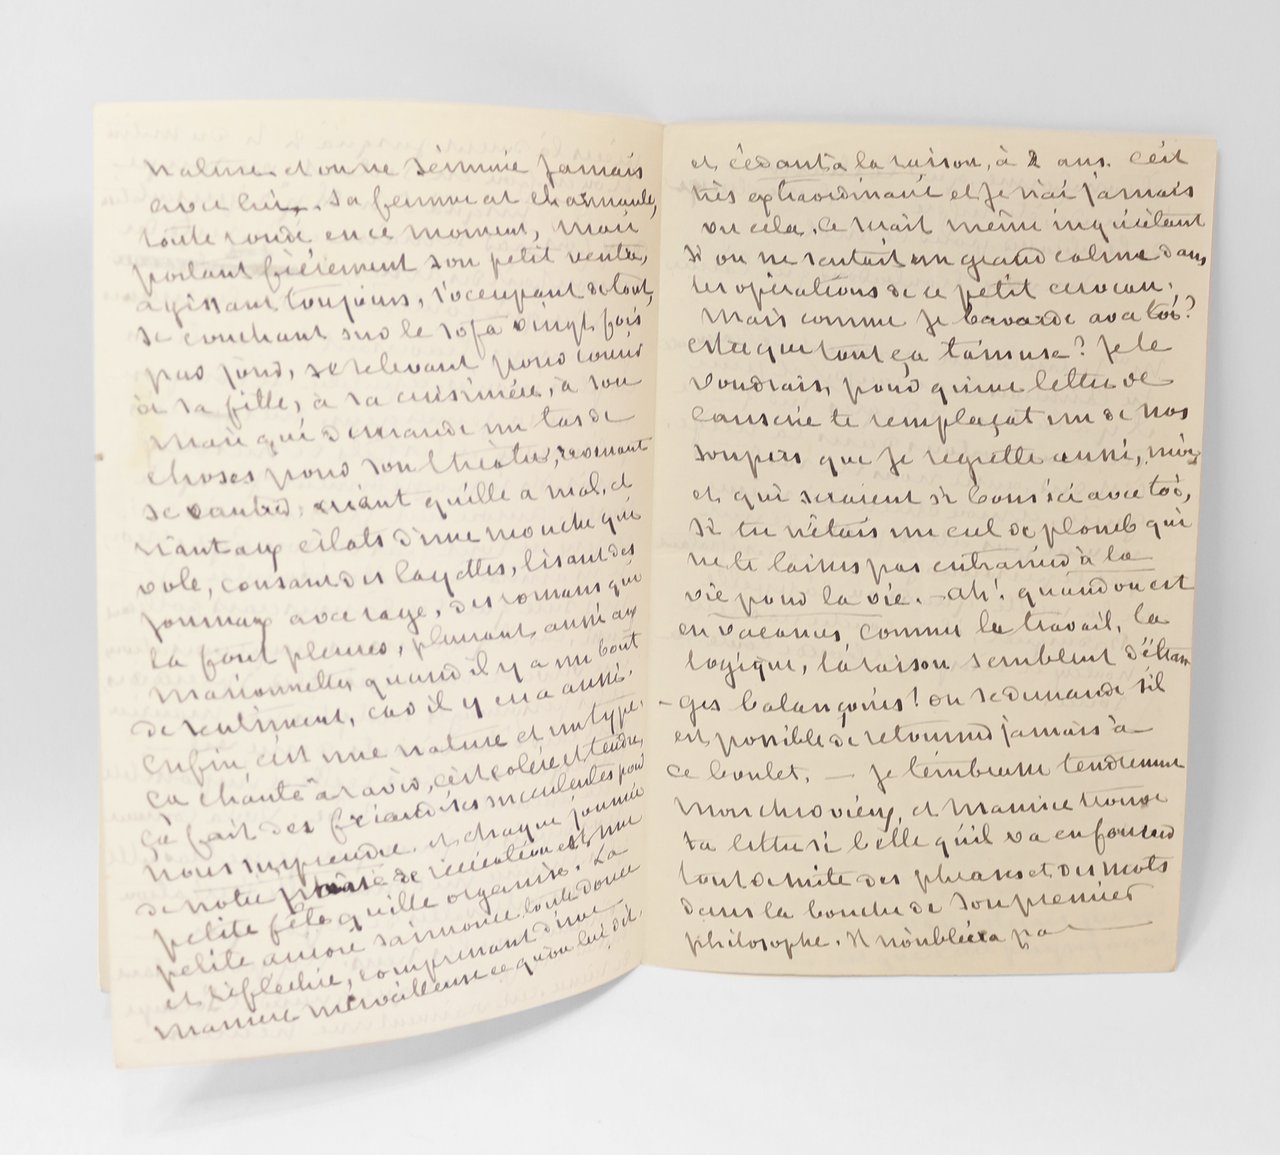 nature. et on ne s'ennuie jamais
avec lui. Sa femme est charmante,
toute ronde en ce moment, mais
portant fièrement son petit ventre,
agissant toujours, s'occupant de tout,
se couchant sur le sofa vingt fois
par jour, se relevant pour courir
à sa fille, à sa cuisinière, à son
mari qui demande un tas de
choses pour son théâtre, revenant
se vautrer, criant qu'elle a mal, et
riant aux éclats d'une mouche qui
vole, cousant des layettes, lisant des
journaux avec rage, des romans qui
la font pleurer, pleurant aussi aux
marionnettes quand il y a un bout
de sentiment, car il y en a aussi.
Enfin c'est une nature et un type,
ça chante à ravir, c'est colère et tendre,
ça fait des friandises succulentes pour
nous surprendre, et chaque journée
de notre phase de récréation est une
petite fête qu'elle organise. La
petite aurore s'annonce toute douce
et réfléchie, comprenant d'une
manière merveilleuse ce qu'on lui dit,
et cédant à la raison, à 2 ans. C'est
très extraordinaire et je n'ai jamais
vu cela. Ce serait même inquiétant
si on ne sentait un grand calme dans
les opérations de ce petit cerveau.
Mais comme je bavarde avec toi?
est-ce que tout ça t'amuse? Je le
voudrais, pour qu'une lettre de
causerie te remplaçat un de nos
soupers que je regrette aussi, moi,
et qui seraient si bons ici avec toi,
si tu n'étais un cul de plomb qui
ne te laisses pas entraîner à la
vie pour la vie. – ah! quand on est
en vacances, comme le travail, la
logique, la raison semblent d'étran
-ges balançoires! on se demande s'il
est possible de retourner jamais à
ce boulet. — Je t'embrasse tendrement
mon cher vieux, et Maurice trouve
ta lettre si belle qu'il va en fourrer
tout de suite des phrases et des mots
dans la bouche de son premier
philosophe. Il n'oubliera pa